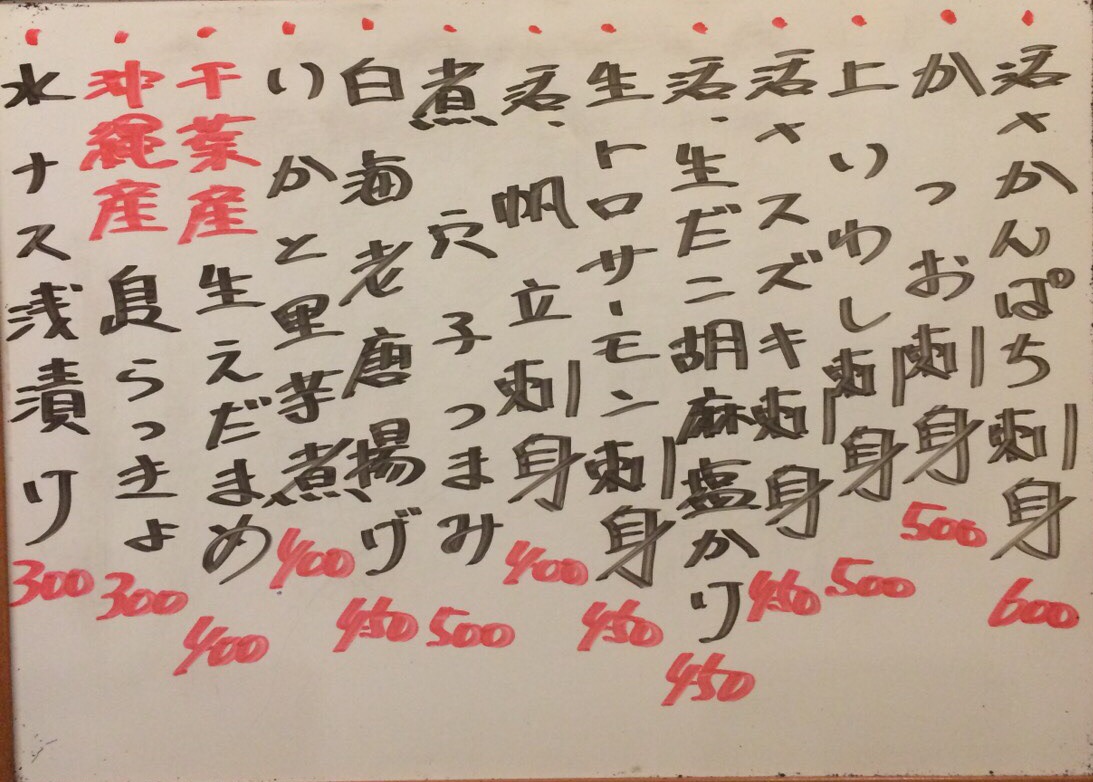 活〆かんぱち刺身 600
かつお刺身 500
上いわし刺身 500
活〆スズキ刺身 450
活、生だこ胡麻塩かり 450
生トロサーモン刺身 450
活、帆立刺身 400
煮穴子つまみ 500
白海老唐揚げ 450
いかと里芋煮 400
千葉産生えだまめ 400
沖縄産島らっきょ 300
水ナス浅漬り 300